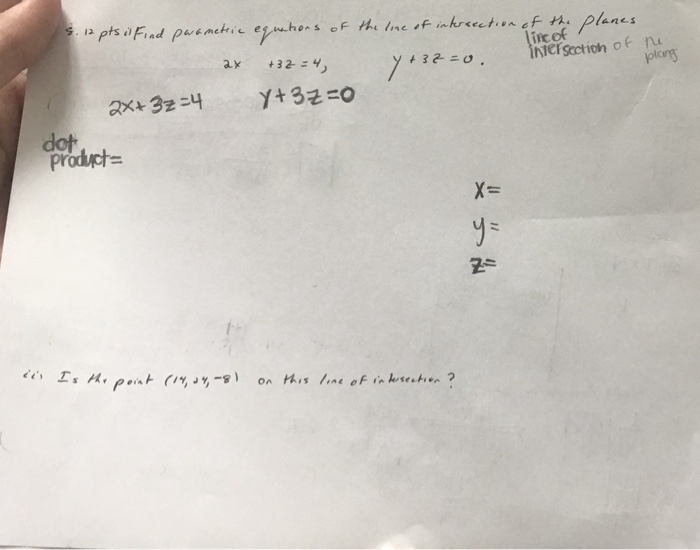 5. 12 pts i) Find parametric equations of the line of intersection of the planes
line of
intersection of
2x +3z=4, y+3z=0.
2x+3z=4 y+3z=0
dot
product=
x=
y=
z=
ii) Is the point (14, 24, -8) on this line of intersection?